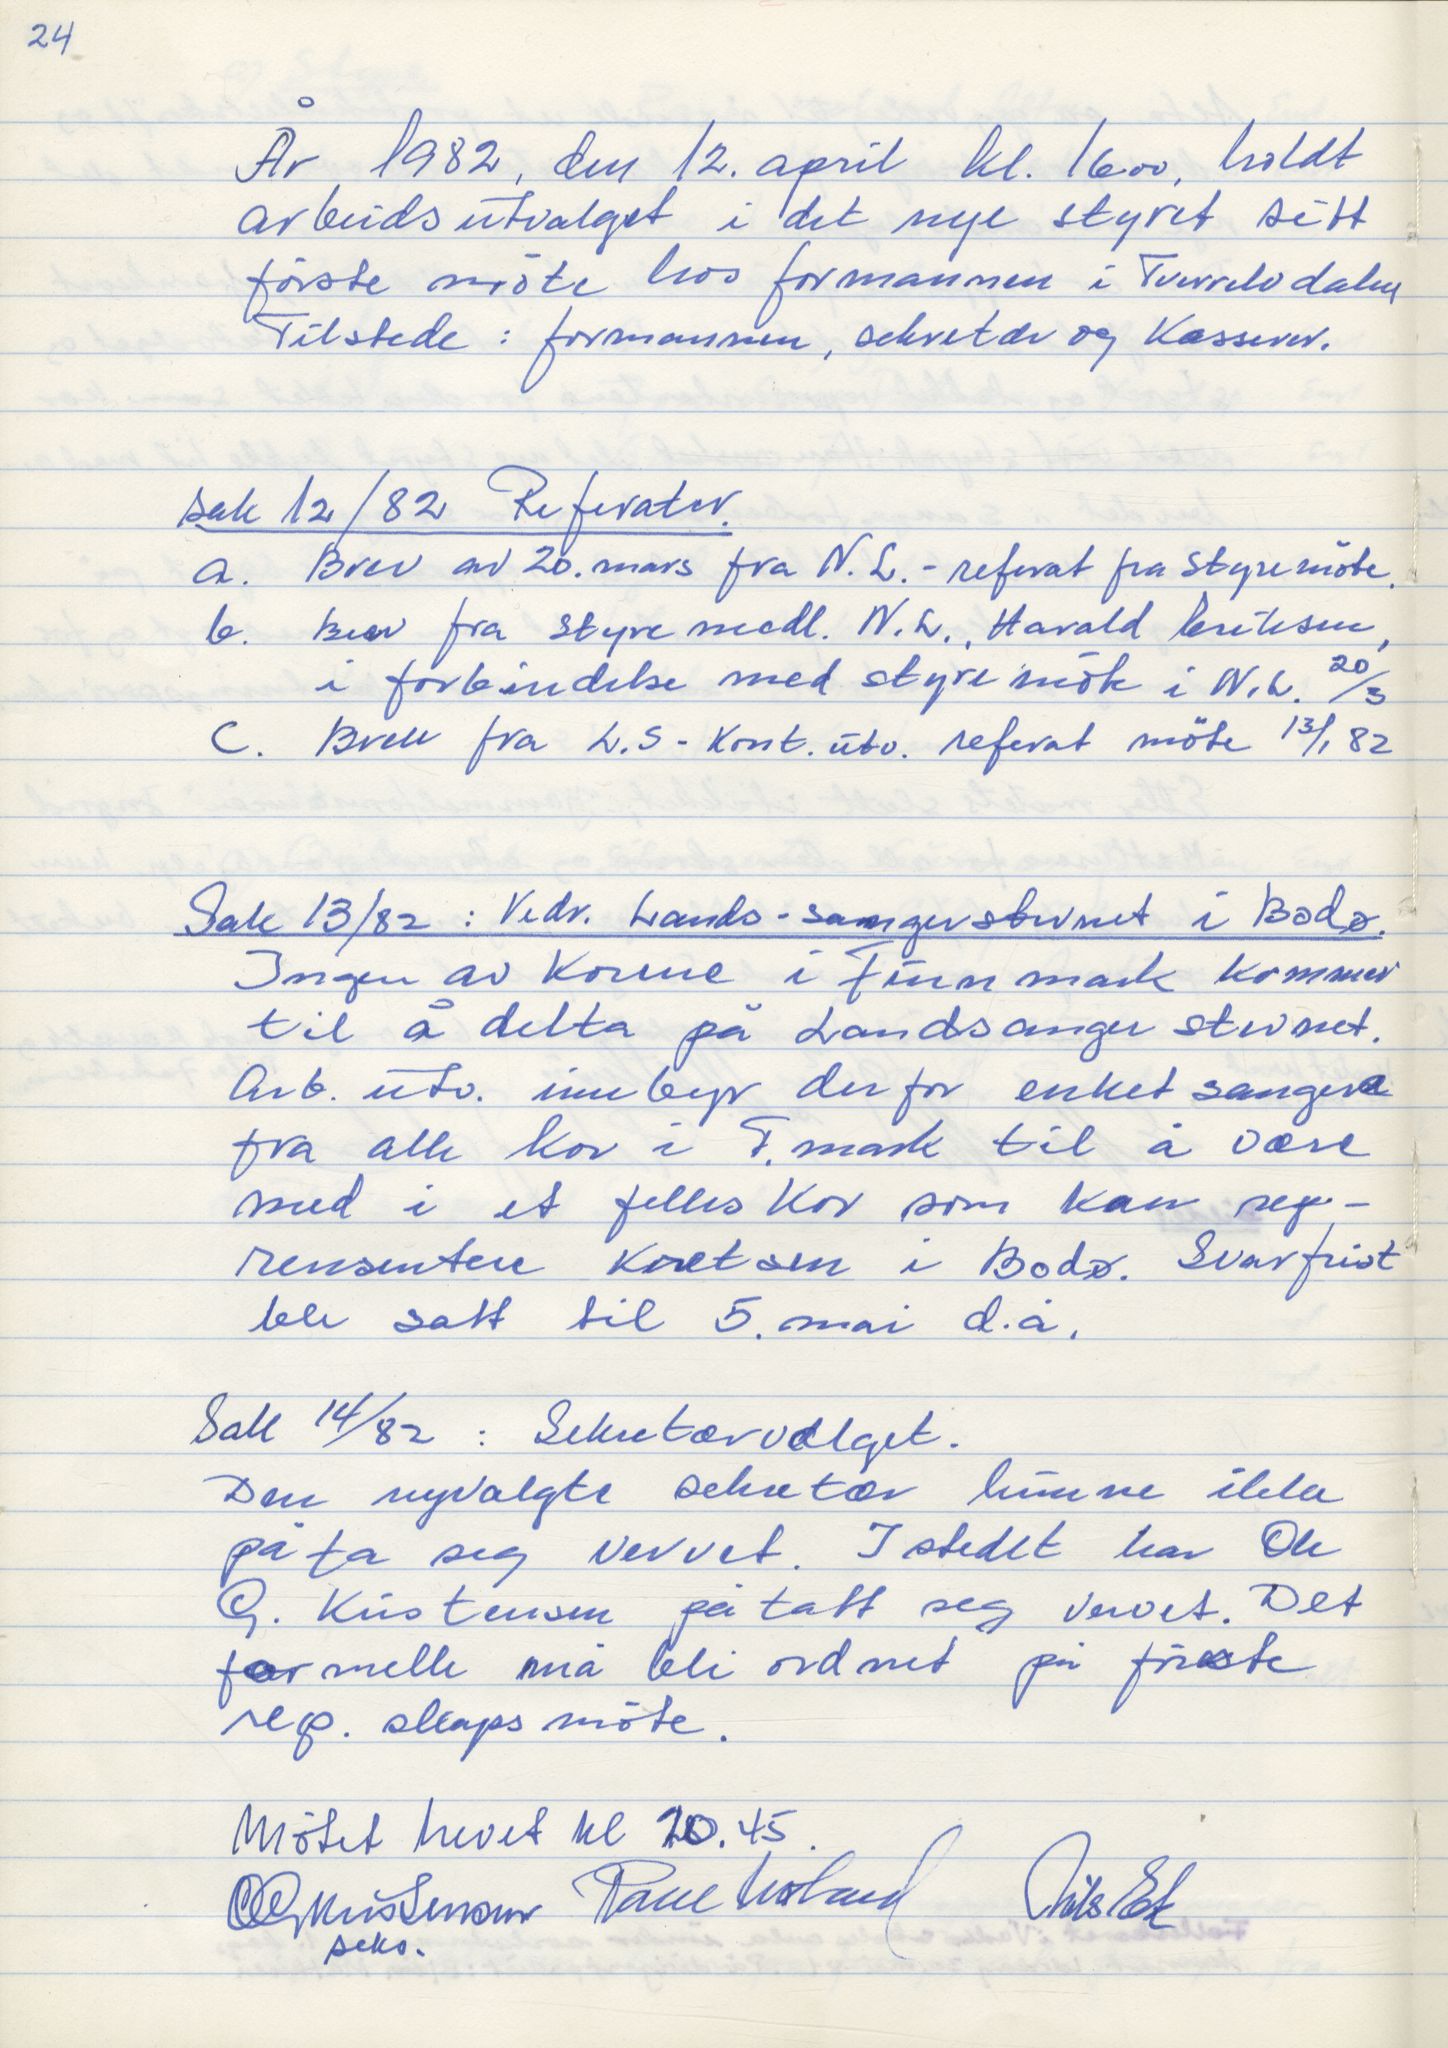 24
År 1982, den 12. april kl. 1600, holdt
arbeidsutvalget i det nye styret sitt
förste möte hos formannen i Tverrelvdalen
Tilstede : formannen, sekretær og Kasserer.
Sak 12/82 Referater.
a. Brev av 20. mars fra N.L. - referat fra styremöte.
b. Brev fra styremedl. N.L., Harald Eriksen,
i forbindelse med styremöte i N.L. 20/3
C. Brev fra L.S - Kont. utv. referat möte 13/1 82
Sak 13/82 : Vedr. Lands-sangerstevnet i Bodø.
Ingen av Korene i Finnmark kommer
til å delta på Landsangerstevnet.
Arb. utv. innbyr derfor enket sangere
fra alle kor i F.mark til å være
med i et felles Kor som kan rep-
rensentere Kretsen i Bodø. Svarfrist
ble satt til 5. mai d.å.
Sak 14/82 : Sekretærvalget.
Den nyvalgte sekretær kunne ikke
påta seg vervet. Istedet har Ole
G. Kristensen påtatt seg vervet. Det
formelle må bli ordnet på förste
rep. skapsmöte.
Mötet hevet kl 20.45.
OG Kristensen
sekr.